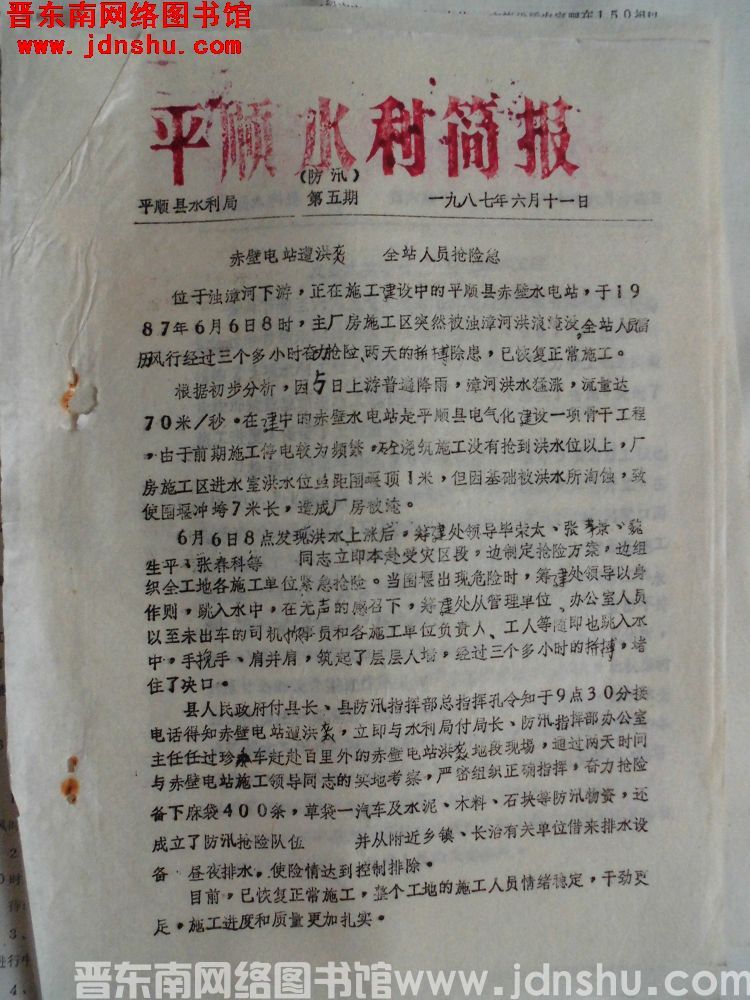 晋东南网络图书馆
www.jdnshu.com
平顺水利简报
(防汛)
平顺县水利局 第五期 一九八七年六月十一日
赤壁电站遭洪袭 全站人员抢险急
位于浊漳河下游，正在施工建设中的平顺县赤壁水电站，于19
87年6月6日8时，主厂房施工区突然被浊漳河洪浪淹没，全站人员雷
历风行经过三个多小时奋力抢险、两天的拚搏除患，已恢复正常施工。
根据初步分析，因5日上游普遍降雨，漳河洪水猛涨，流量达
70米/秒。在建中的赤壁水电站是平顺县电气化建设一项骨干工程
，由于前期施工停电较为频繁，砼浇筑施工没有抢到洪水位以上，厂
房施工区进水室洪水位虽距围堰顶1米，但因基础被洪水所淘蚀，致
使围堰冲垮7米长，造成厂房被淹。
6月6日8点发现洪水上涨后，筹建处领导毕荣太、张 景、魏
生平、张春科等 同志立即本赴受灾区段，边制定抢险方案，边组
织全工地各施工单位紧急抢险。当围堰出现危险时，筹建处领导以身
作则，跳入水中，在无声的感召下，筹建处从管理单位、办公室人员
以至未出车的司机炊事员和各施工单位负责人、工人等随即也跳入水
中，手挽手、肩并肩，筑起了层层人墙，经过三个多小时的拚搏，堵
住了决口。
县人民政府付县长、县防汛指挥部总指挥孔令知于9点30分接
电话得知赤壁电站遭洪袭，立即与水利局付局长、防汛指挥部办公室
主任任过珍乘车赶赴百里外的赤壁电站洪袭地段现场，通过两天时间
与赤壁电站施工领导同志的实地考察，严密组织正确指挥，奋力抢险
备下麻袋400条，草袋一汽车及水泥、木料、石块等防汛物资，还
成立了防汛抢险队伍 并从附近乡镇、长治有关单位借来排水设
备 昼夜排水，使险情达到控制排除。
目前，已恢复正常施工，整个工地的施工人员情绪稳定，干劲更
足，施工进度和质量更加扎实。
晋东南网络图书馆www.jdnshu.com